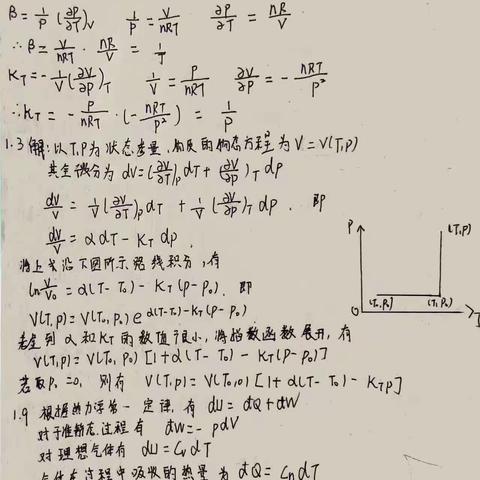 β = 1/P (∂P/∂T)_V    1/P = V/nRT    ∂P/∂T = nR/V
∴ β = V/nRT · nR/V = 1/T
K_T = -1/V (∂V/∂P)_T    1/V = P/nRT    ∂V/∂P = - nRT/P²
∴ K_T = - P/nRT · (- nRT/P²) = 1/P
1.3 解: 以T,P为状态变量, 物质的物态方程为 V = V(T,P)
其全微分为 dV = (∂V/∂T)_P dT + (∂V/∂P)_T dP
dV/V = 1/V (∂V/∂T)_P dT + 1/V (∂V/∂P)_T dP . 即
dV/V = αdT - K_T dP .
将上式沿下图所示路线积分, 有
ln V/V₀ = α(T - T₀) - K_T (P - P₀) . 即
V(T,P) = V(T₀, P₀) e^α(T-T₀)-K_T(P-P₀)
P
(T,P)
(T₀,P₀)    (T,P₀)
O    T
考虑到 α和K_T 的数值很小, 将指数函数展开, 有
V(T,P) = V(T₀, P₀) [1+α(T - T₀) - K_T(P - P₀)]
若取P₀ =0, 则有 V(T,P) = V(T₀,0) [1+ α(T - T₀) - K_T P]
1.9 根据热力学第一定律, 有 dU = đQ + đW
对于准静态过程有 đW = - PdV
对理想气体有 dU = C_V dT
气体在过程中吸收的热量为 đQ = C_n dT